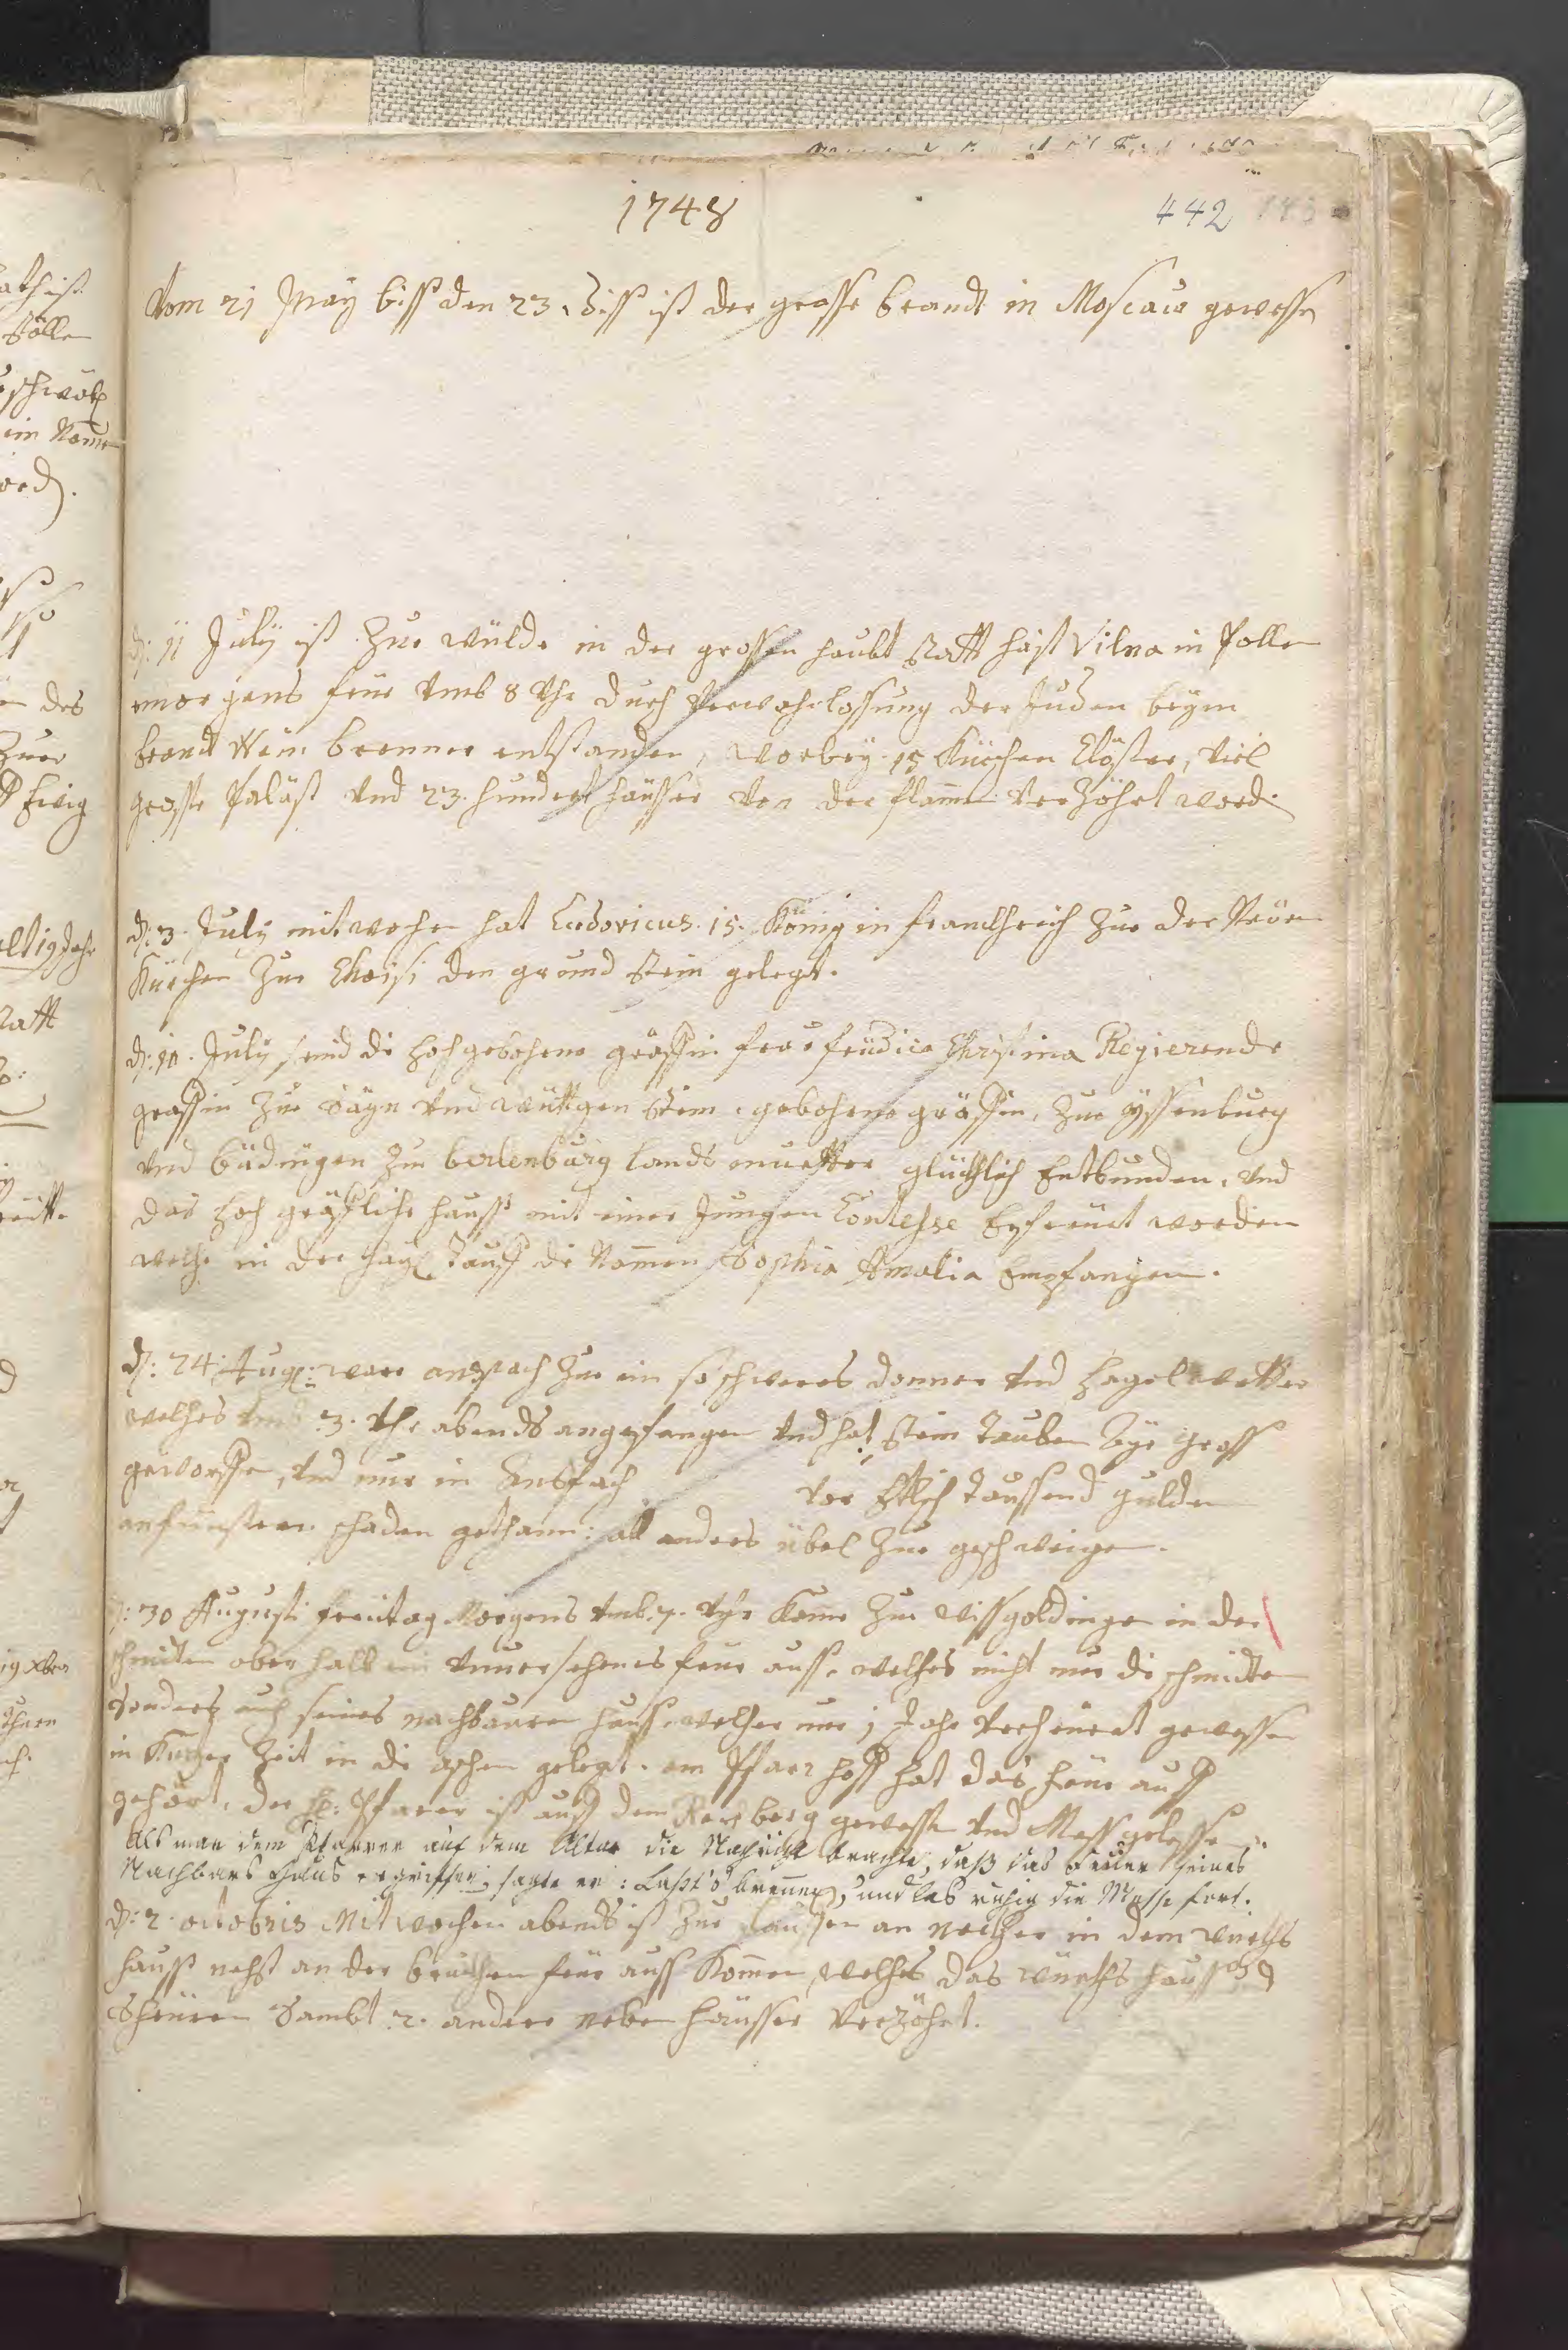 1748
442
Vom 21 May biss den 23. diss ist der grosse brandt in Moscaw gewesse
d: 11 July ist zue wülda in der grossen haubt Statt häist Vilna in Pollen
morgens feür vmb 8 Vhr durch Verwahrlossung der Juden beym
brandt Wein brenner entstanden, worbey 15 Kürchen Clöster, viel
grosse Paläst vnd 23. hundert häusser von der flamme verzöhrt word
d: 3. July mitwochen hat Ludovicus. 15. König in franckhreich zue der Neüen
Kürchen zue Choisi den grund Stein gelegt.
d: 10. July seind die hochgebohrne gräffin frau friderica Christina Regierende
gräffin zue Sayn vnd wüttgenstein, gebohrne gräffin, zue yssenburg
vnd büdingen zue berlenburg lands muetter glücklich Entbunden, vnd
das hoch gräffliche hauss mit einer Jungen Contesse Erfreüet worden
welche in der hayl Tauff die Nammen Sophia Amalia Empfangen.
d: 24. Aug: ware anspach zue ein so schweres donner vnd hagel wetter
welches vmb 3. Vhr abends angefangen vnd hat Stein Tauben Eyr gross
geworffen, vnd nur in Ansbach vor Etlich taussend gulden
an fensteren schaden gethann: all anders übel zue geschweigen.
d: 30 Augusti freitag Morgens vmb 7. Vhr Kame zue wissgoldingen in der
schmidten oberhalb ein vnuersehenes feür auss, welches nicht nur die schmidten
sonders auch seines nachbauren hauss, welcher nur 1 Jahr verheürat gewessen
in Kurzer Zeit in die aschen gelegt. am Pfarr hoff hat das feür auff
gehört, der H: Pfarrer ist auff dem Rechberg gewesse vnd Mess gelesse
Als man dem Pfarrer auf dem Altar die Nachricht brachte, daß das Feuer seines
Nachbars Haus ergriffen, sagte er: Laßt's brennen, und las ruhig die Messe fort.
d: 2. octobris Mitwochen abends ist zue lauffen an neckher in dem würths
hauss nechst an der bruckhen feür auss Kommen, welches das würths hauss
Scheüren Sambt 2. andere neben häusser verzöhrt.